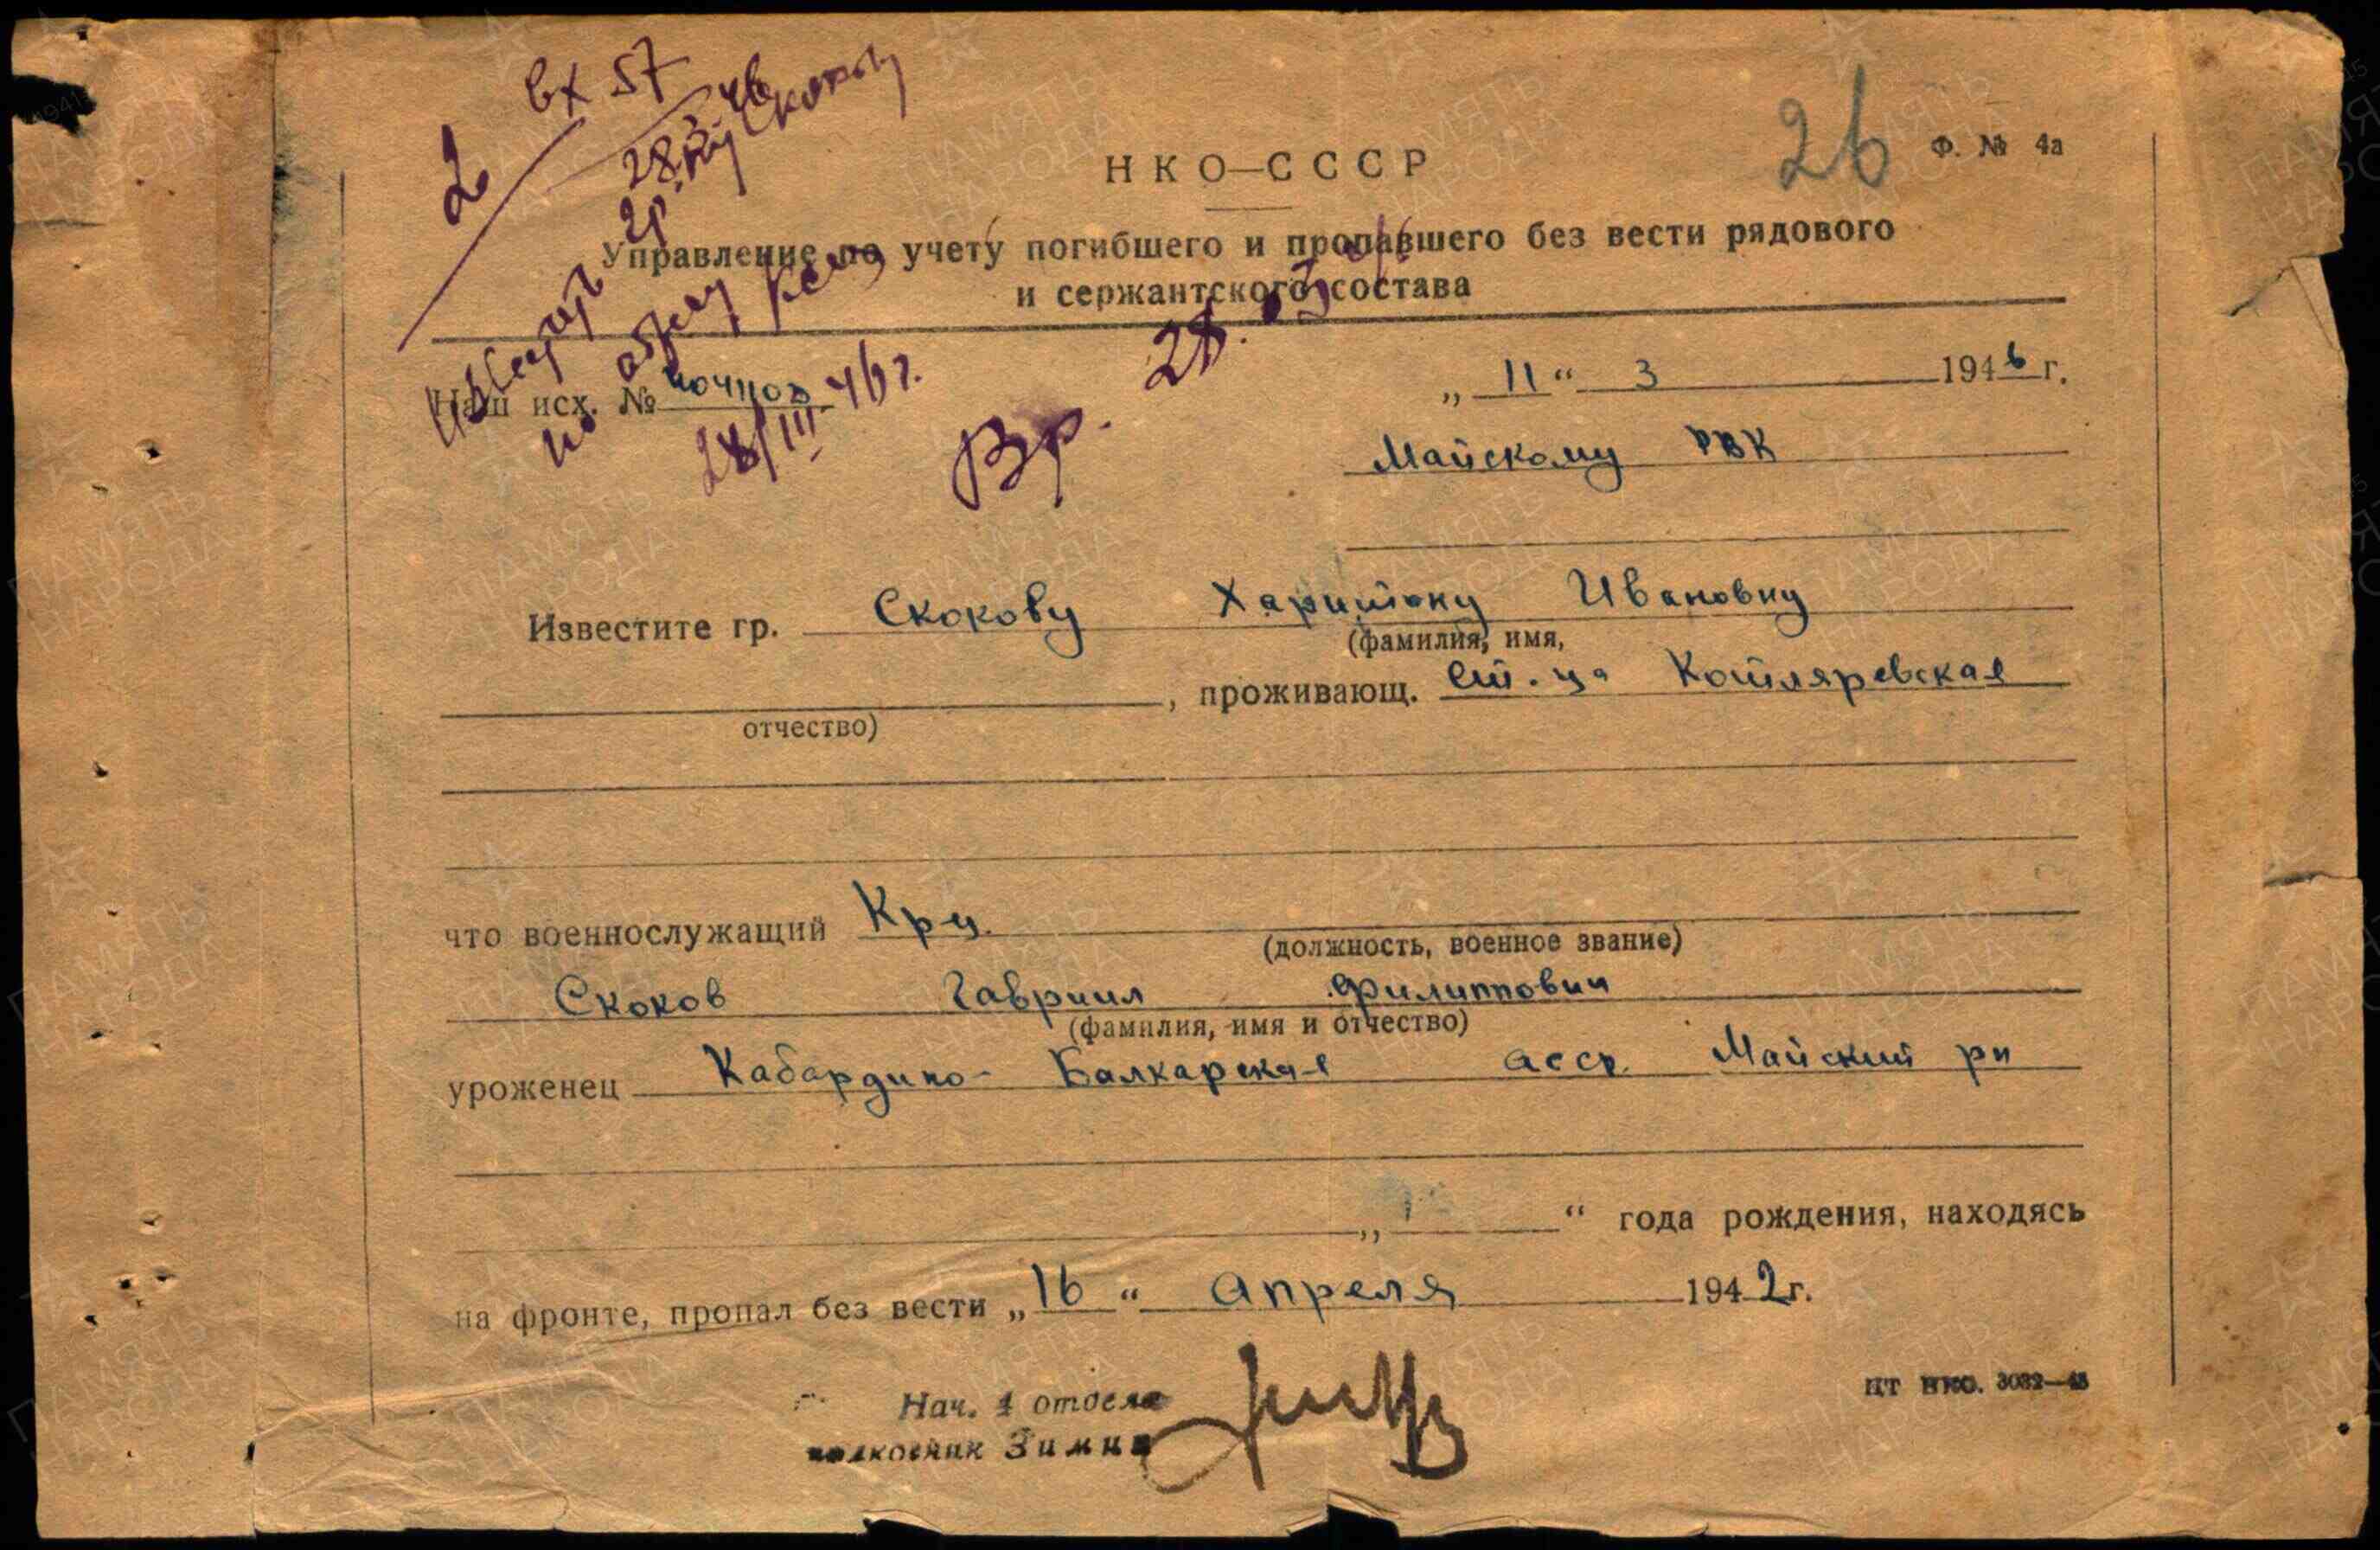 вх 57
28.3.46
2
26
Ф. № 4а
НКО—СССР
Управление по учету погибшего и пропавшего без вести рядового
и сержантского состава
Наш исх. №
28/III-46 г.
Вр.
„ 11 “ 3 1946 г.
Майскому РВК
Известите гр. Скокову Харитону Ивановну
(фамилия, имя,
, проживающ. ст.ца Котляревская
отчество)
что военнослужащий Кр-ц.
(должность, военное звание)
Скоков Гавриил Филиппович
(фамилия, имя и отчество)
уроженец Кабардино-Балкарская асср. Майский рн
„ “ года рождения, находясь
на фронте, пропал без вести „16“ Апреля 1942 г.
Нач. 1 отдела
полковник Зимин
ЦТ НКО. 3032—43
ПАМЯТЬ
НАРОДА